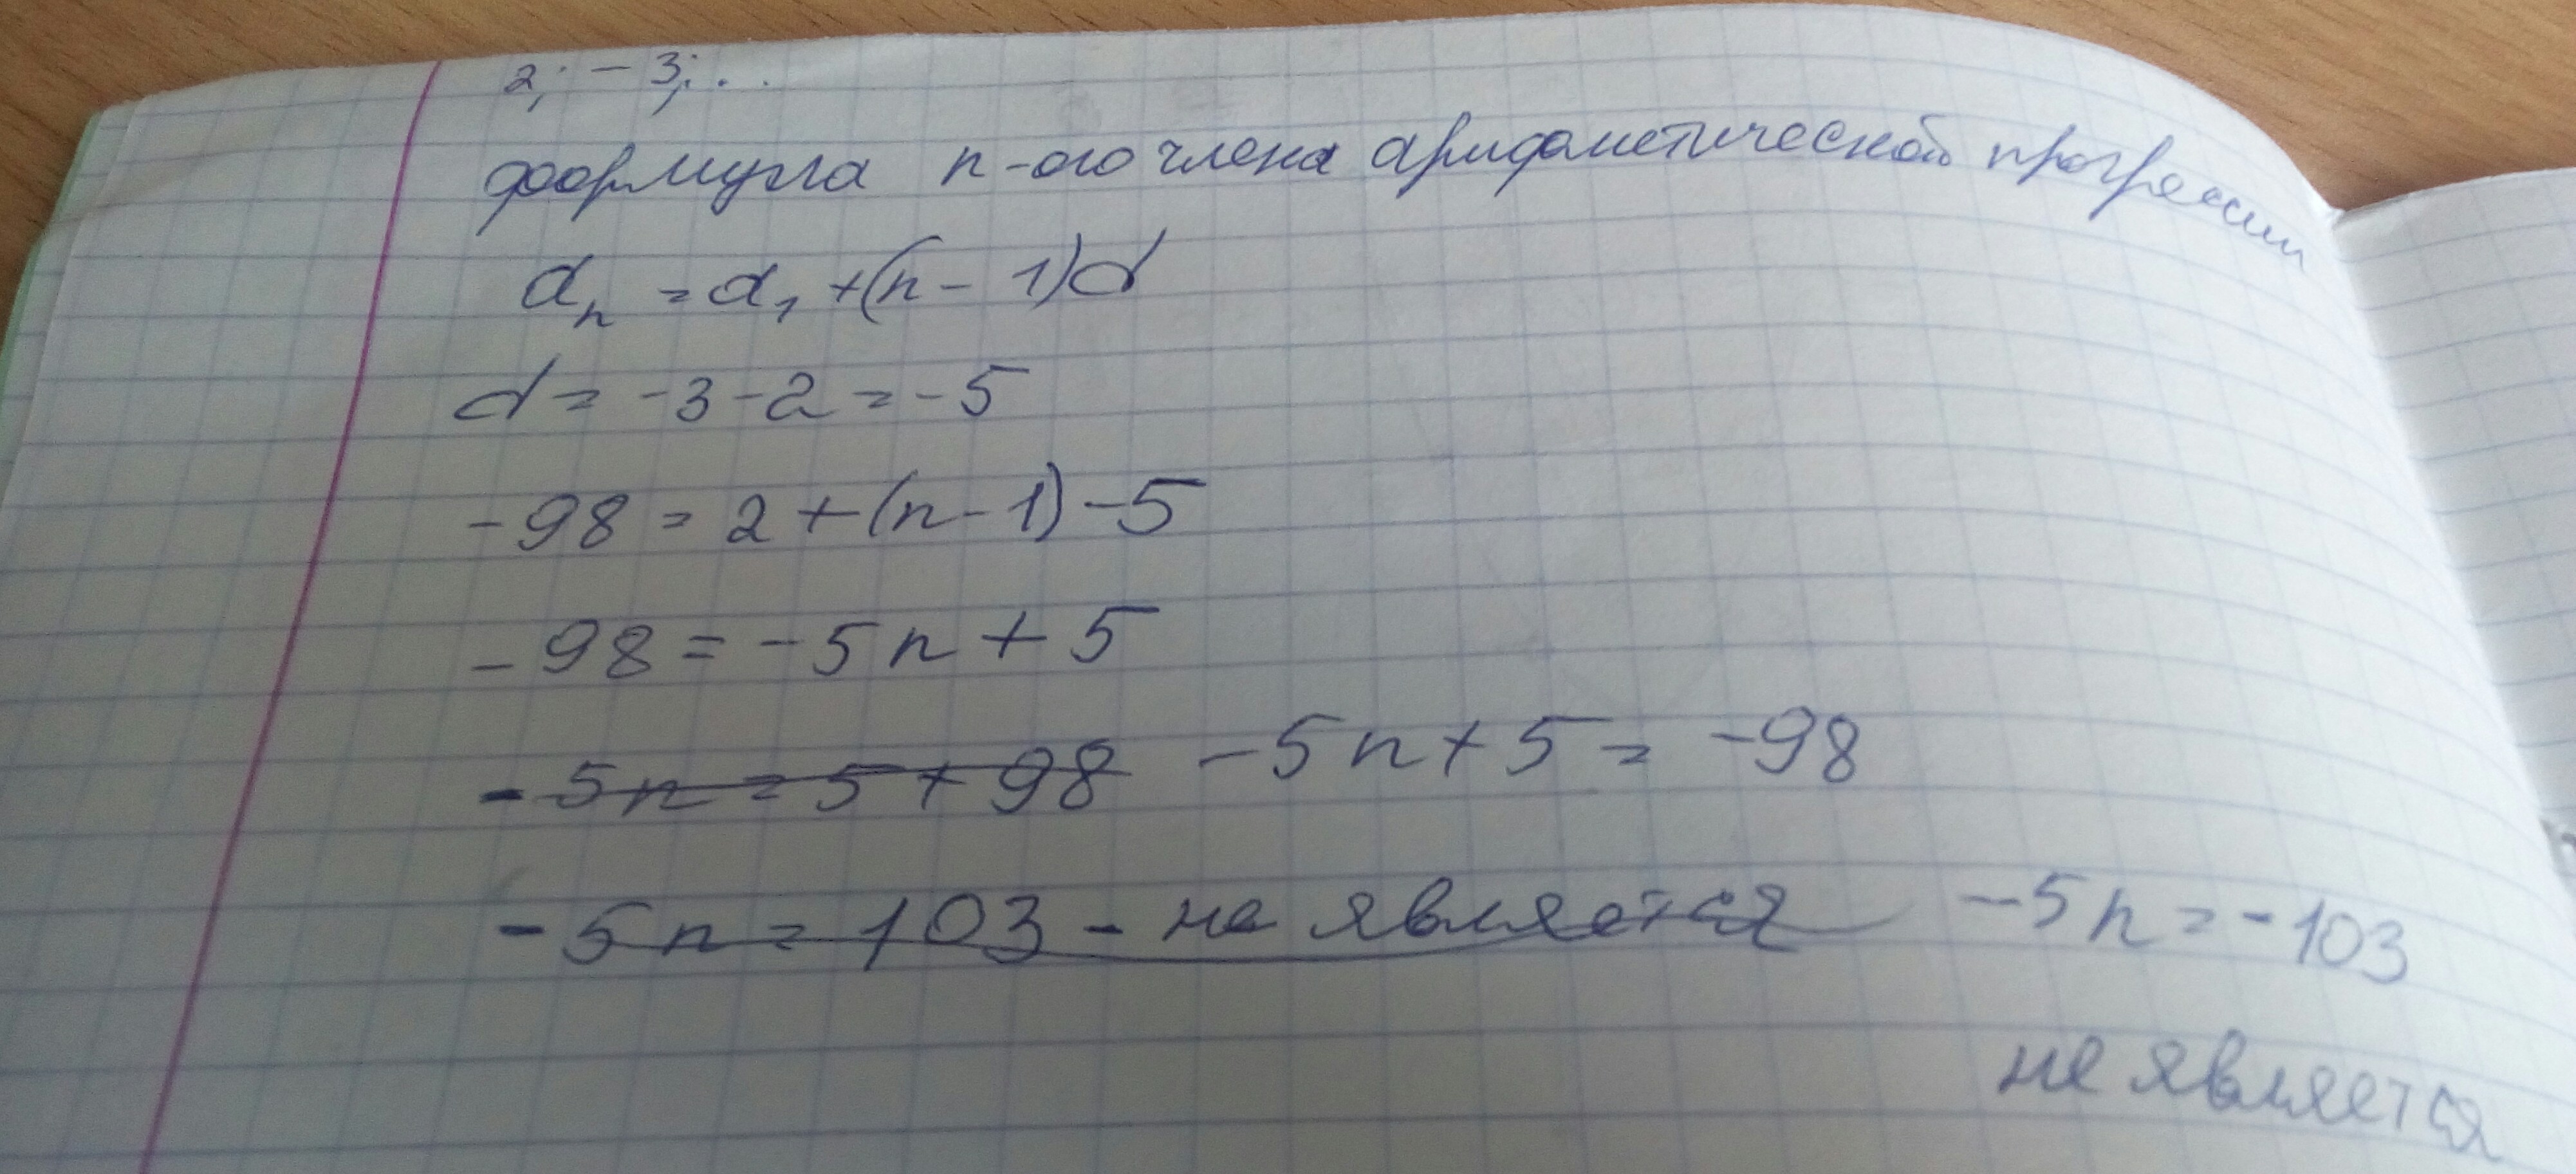 2; -3; ...
формула n-ого члена арифметической прогрессии
a_n = a_1 + (n - 1)d
d = -3 - 2 = -5
-98 = 2 + (n - 1) -5
-98 = -5n + 5
-5n = 5 + 98 -5n + 5 = -98
-5n = 103 - не является -5n = -103
не является